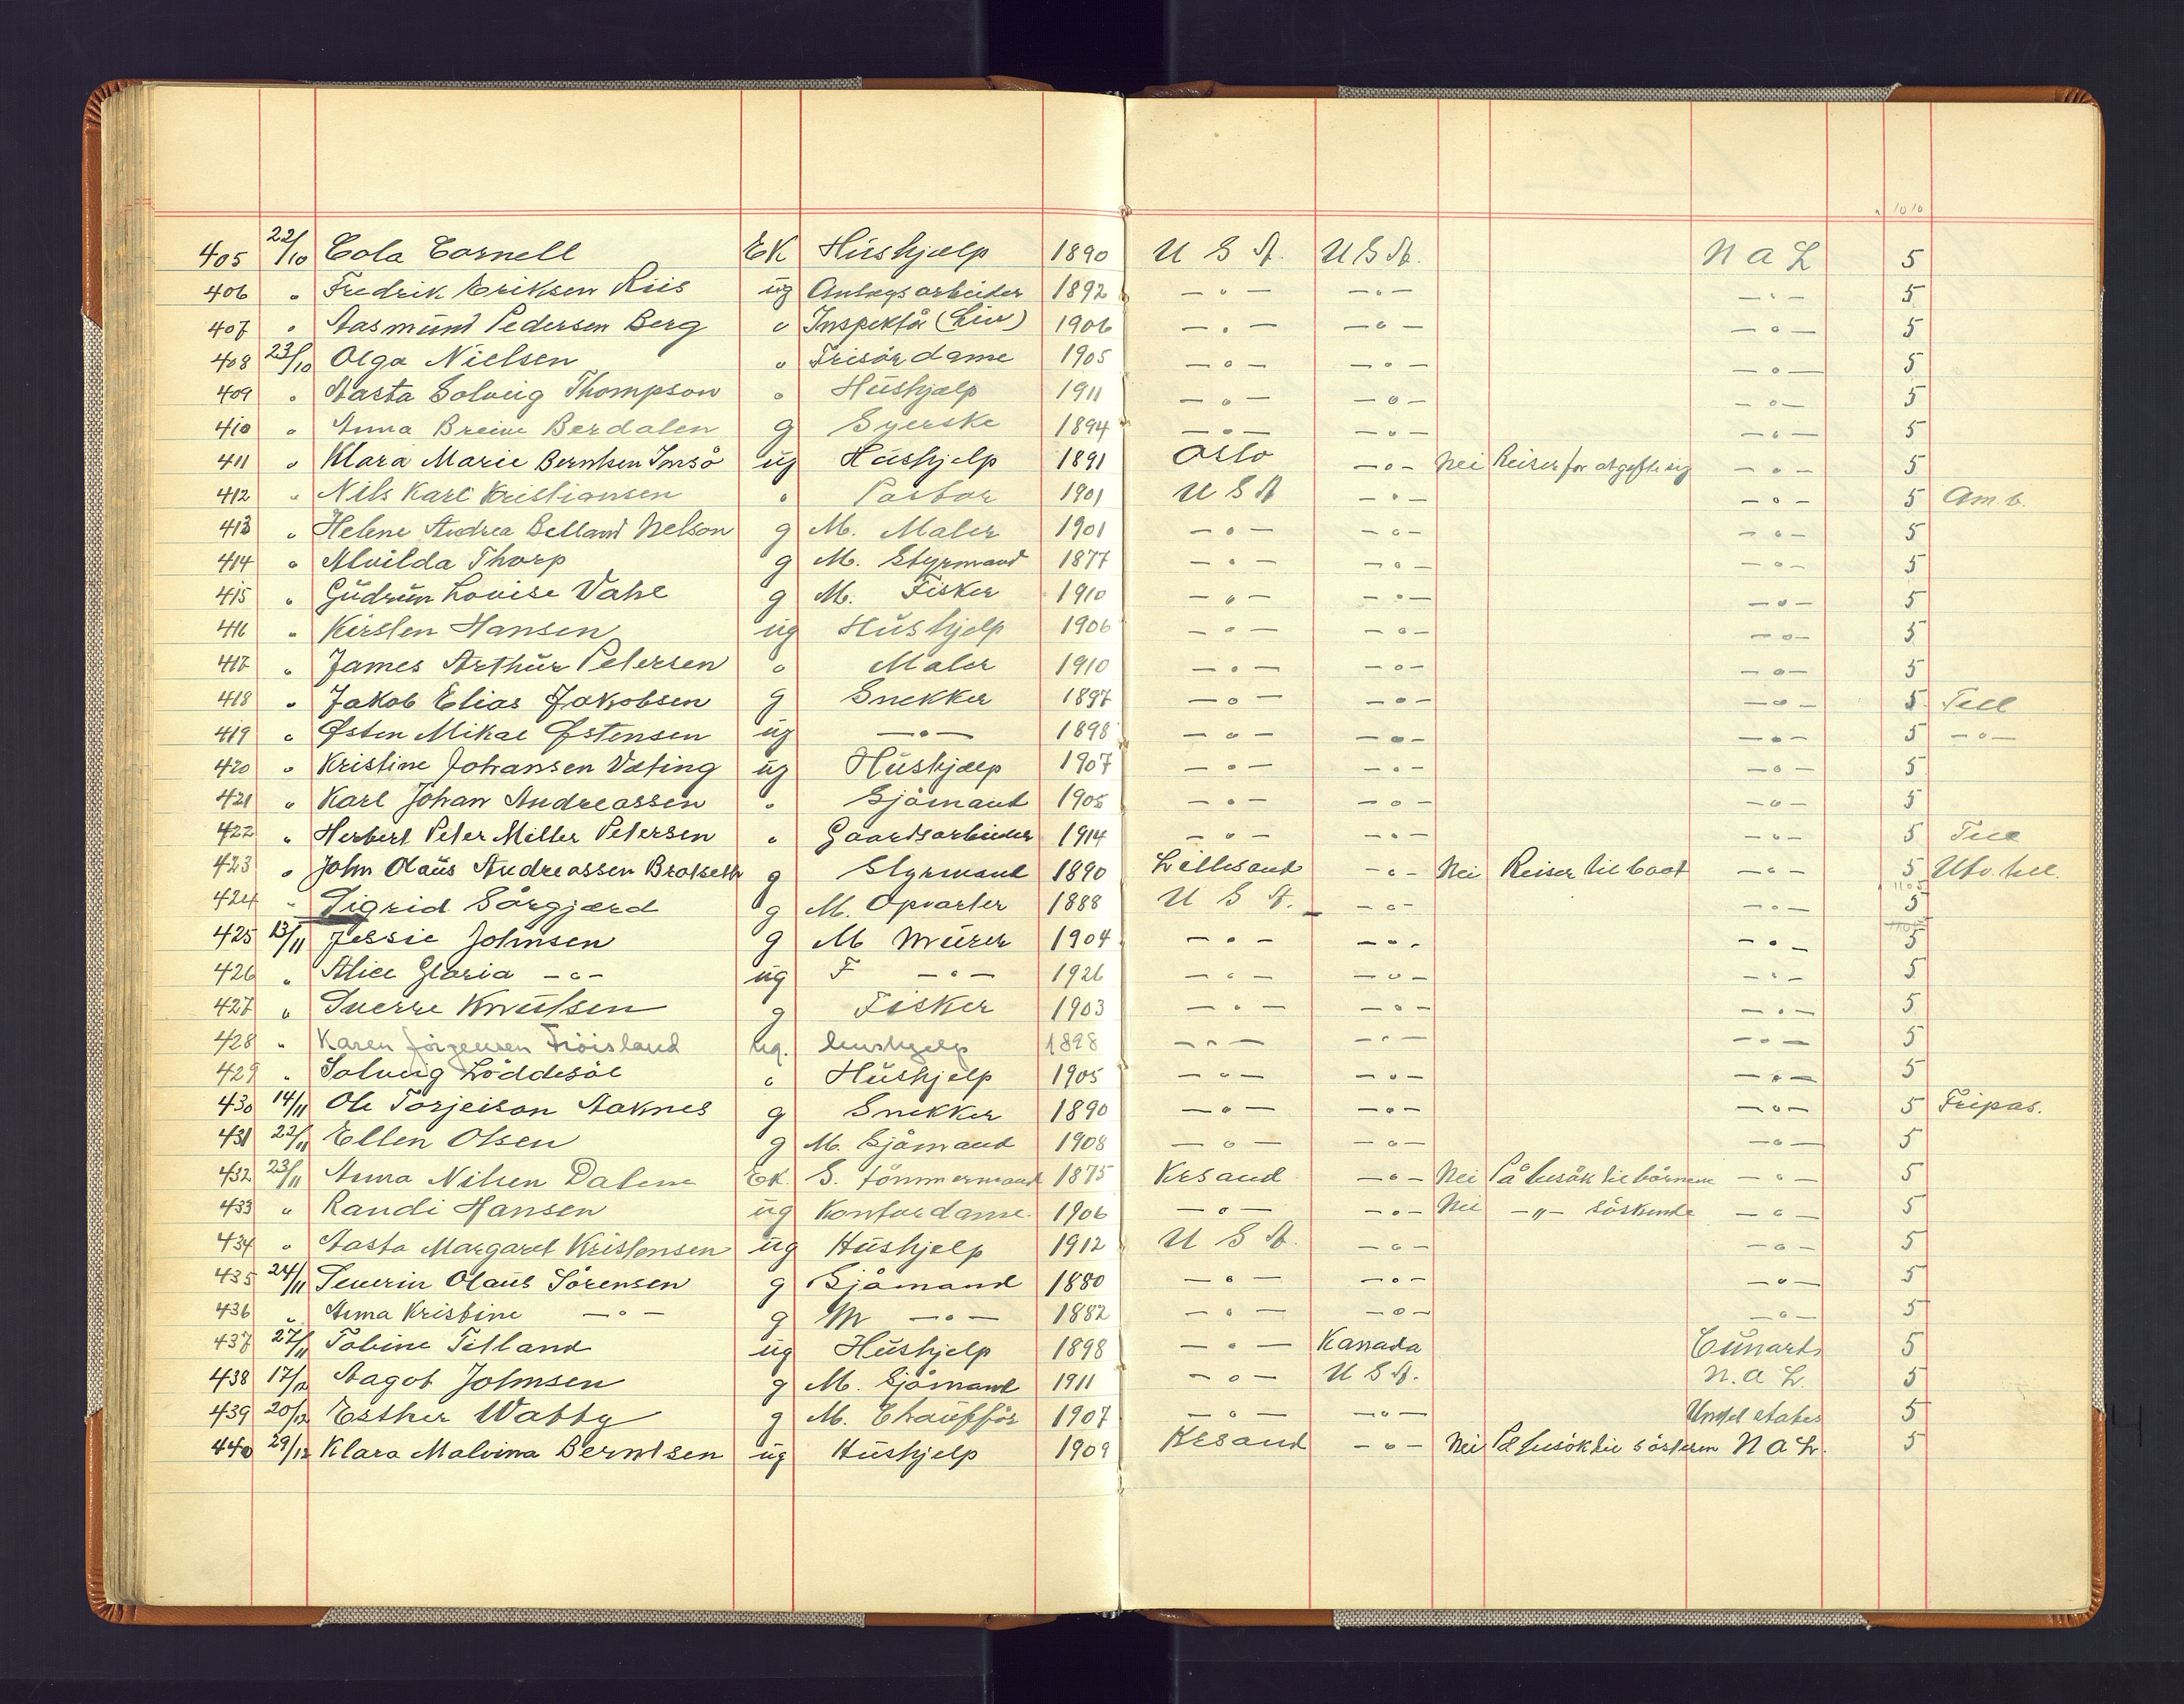 10 10
405 22/10 Cola Cornell EK Hushjælp 1890 U S A. U S A. N A L 5
406 " Fredrik Eriksen Riis ug Anlægsarbeider 1892 -"- -"- -"- 5
407 " Aasmund Pedersen Berg " Inspektør (Liv) 1906 -"- -"- -"- 5
408 23/10 Olga Nielsen " Frisördame 1905 -"- -"- -"- 5
409 " Aasta Solveig Thompson " Hushjælp 1911 -"- -"- -"- 5
410 " Anna Breive Berdalen g Syerske 1894 -"- -"- -"- 5
411 " Klara Marie Berntsen Omsö ug Hushjelp 1891 Oslo -"- Nei Reiser for at gifte sig -"- 5
412 " Nils Karl Kristiansen " Pastor 1901 U S A -"- -"- 5 Am. b.
413 " Helene Andrea Belland Nelson g M. Maler 1901 -"- -"- -"- 5
414 " Alvilda Thorp g M. Styrmand 1877 -"- -"- -"- 5
415 " Gudrun Lovise Vahl g M. Fisker 1910 -"- -"- -"- 5
416 " Kirsten Hansen ug Hushjelp 1906 -"- -"- -"- 5
417 " James Arthur Petersen " Maler 1910 -"- -"- -"- 5
418 " Jakob Elias Jakobsen g Snekker 1897 -"- -"- -"- 5 Tell
419 " Østen Mikal Østensen ug -"- 1898 -"- -"- -"- 5 -"-
420 " Kristine Johansen Væting ug Hushjælp 1907 -"- -"- -"- 5
421 " Karl Johan Andreassen " Sjömand 1905 -"- -"- -"- 5
422 " Herbert Peter Miller Petersen " Gaardsarbeider 1914 -"- -"- -"- 5 Tell
423 " John Olaus Andreassen Bratseth g Styrmand 1890 Lillesand -"- Nei Reiser til baat -"- 5 Utv. tel.
424 " Sigrid Sörgjærd g M. Opvarter 1888 U S A. -"- -"- 5
425 13/11 Jessie Johnsen g M Murer 1904 -"- -"- -"- 5
426 " Alice Gloria -"- ug F -"- 1926 -"- -"- -"- 5
427 " Sverre Knutsen g Fisker 1903 -"- -"- -"- 5
428 " Karen Jörgensen Fröisland ug. hushjelp 1898 -"- -"- -"- 5
429 " Solveig Löddesöl " Hushjelp 1905 -"- -"- -"- 5
430 14/11 Ole Torjeison Aaknes g Snekker 1890 -"- -"- -"- 5 Fripas.
431 22/11 Ellen Olsen g M. Sjömand 1908 -"- -"- -"- 5
432 23/11 Anna Nilsen Dalene Ek. S. tömmermand 1875 Krsand -"- Nei På besök til börnene -"- 5
433 " Randi Hansen ug Kontordame. 1906 -"- -"- Nei -"- söskende -"- 5
434 " Aasta Margaret Kristensen ug Hushjelp 1912 U S A. -"- -"- 5
435 24/11 Severin Olaus Sörensen g Sjömand 1880 -"- -"- -"- 5
436 " Anna Kristine -"- g M -"- 1882 -"- -"- -"- 5
437 27/11 Tobine Tilland ug Hushjelp 1898 -"- Kanada Cunard 5
438 17/12 Aagot Johnsen g M. Sjömand 1911 -"- U S A. N. A L. 5
439 20/12 Esther Watty g M. Chaufför 1907 -"- -"- 5
440 29/12 Klara Malvina Berntsen ug Hushjelp 1909 Krsand -"- Nei På besök til sösteren N A L. 5